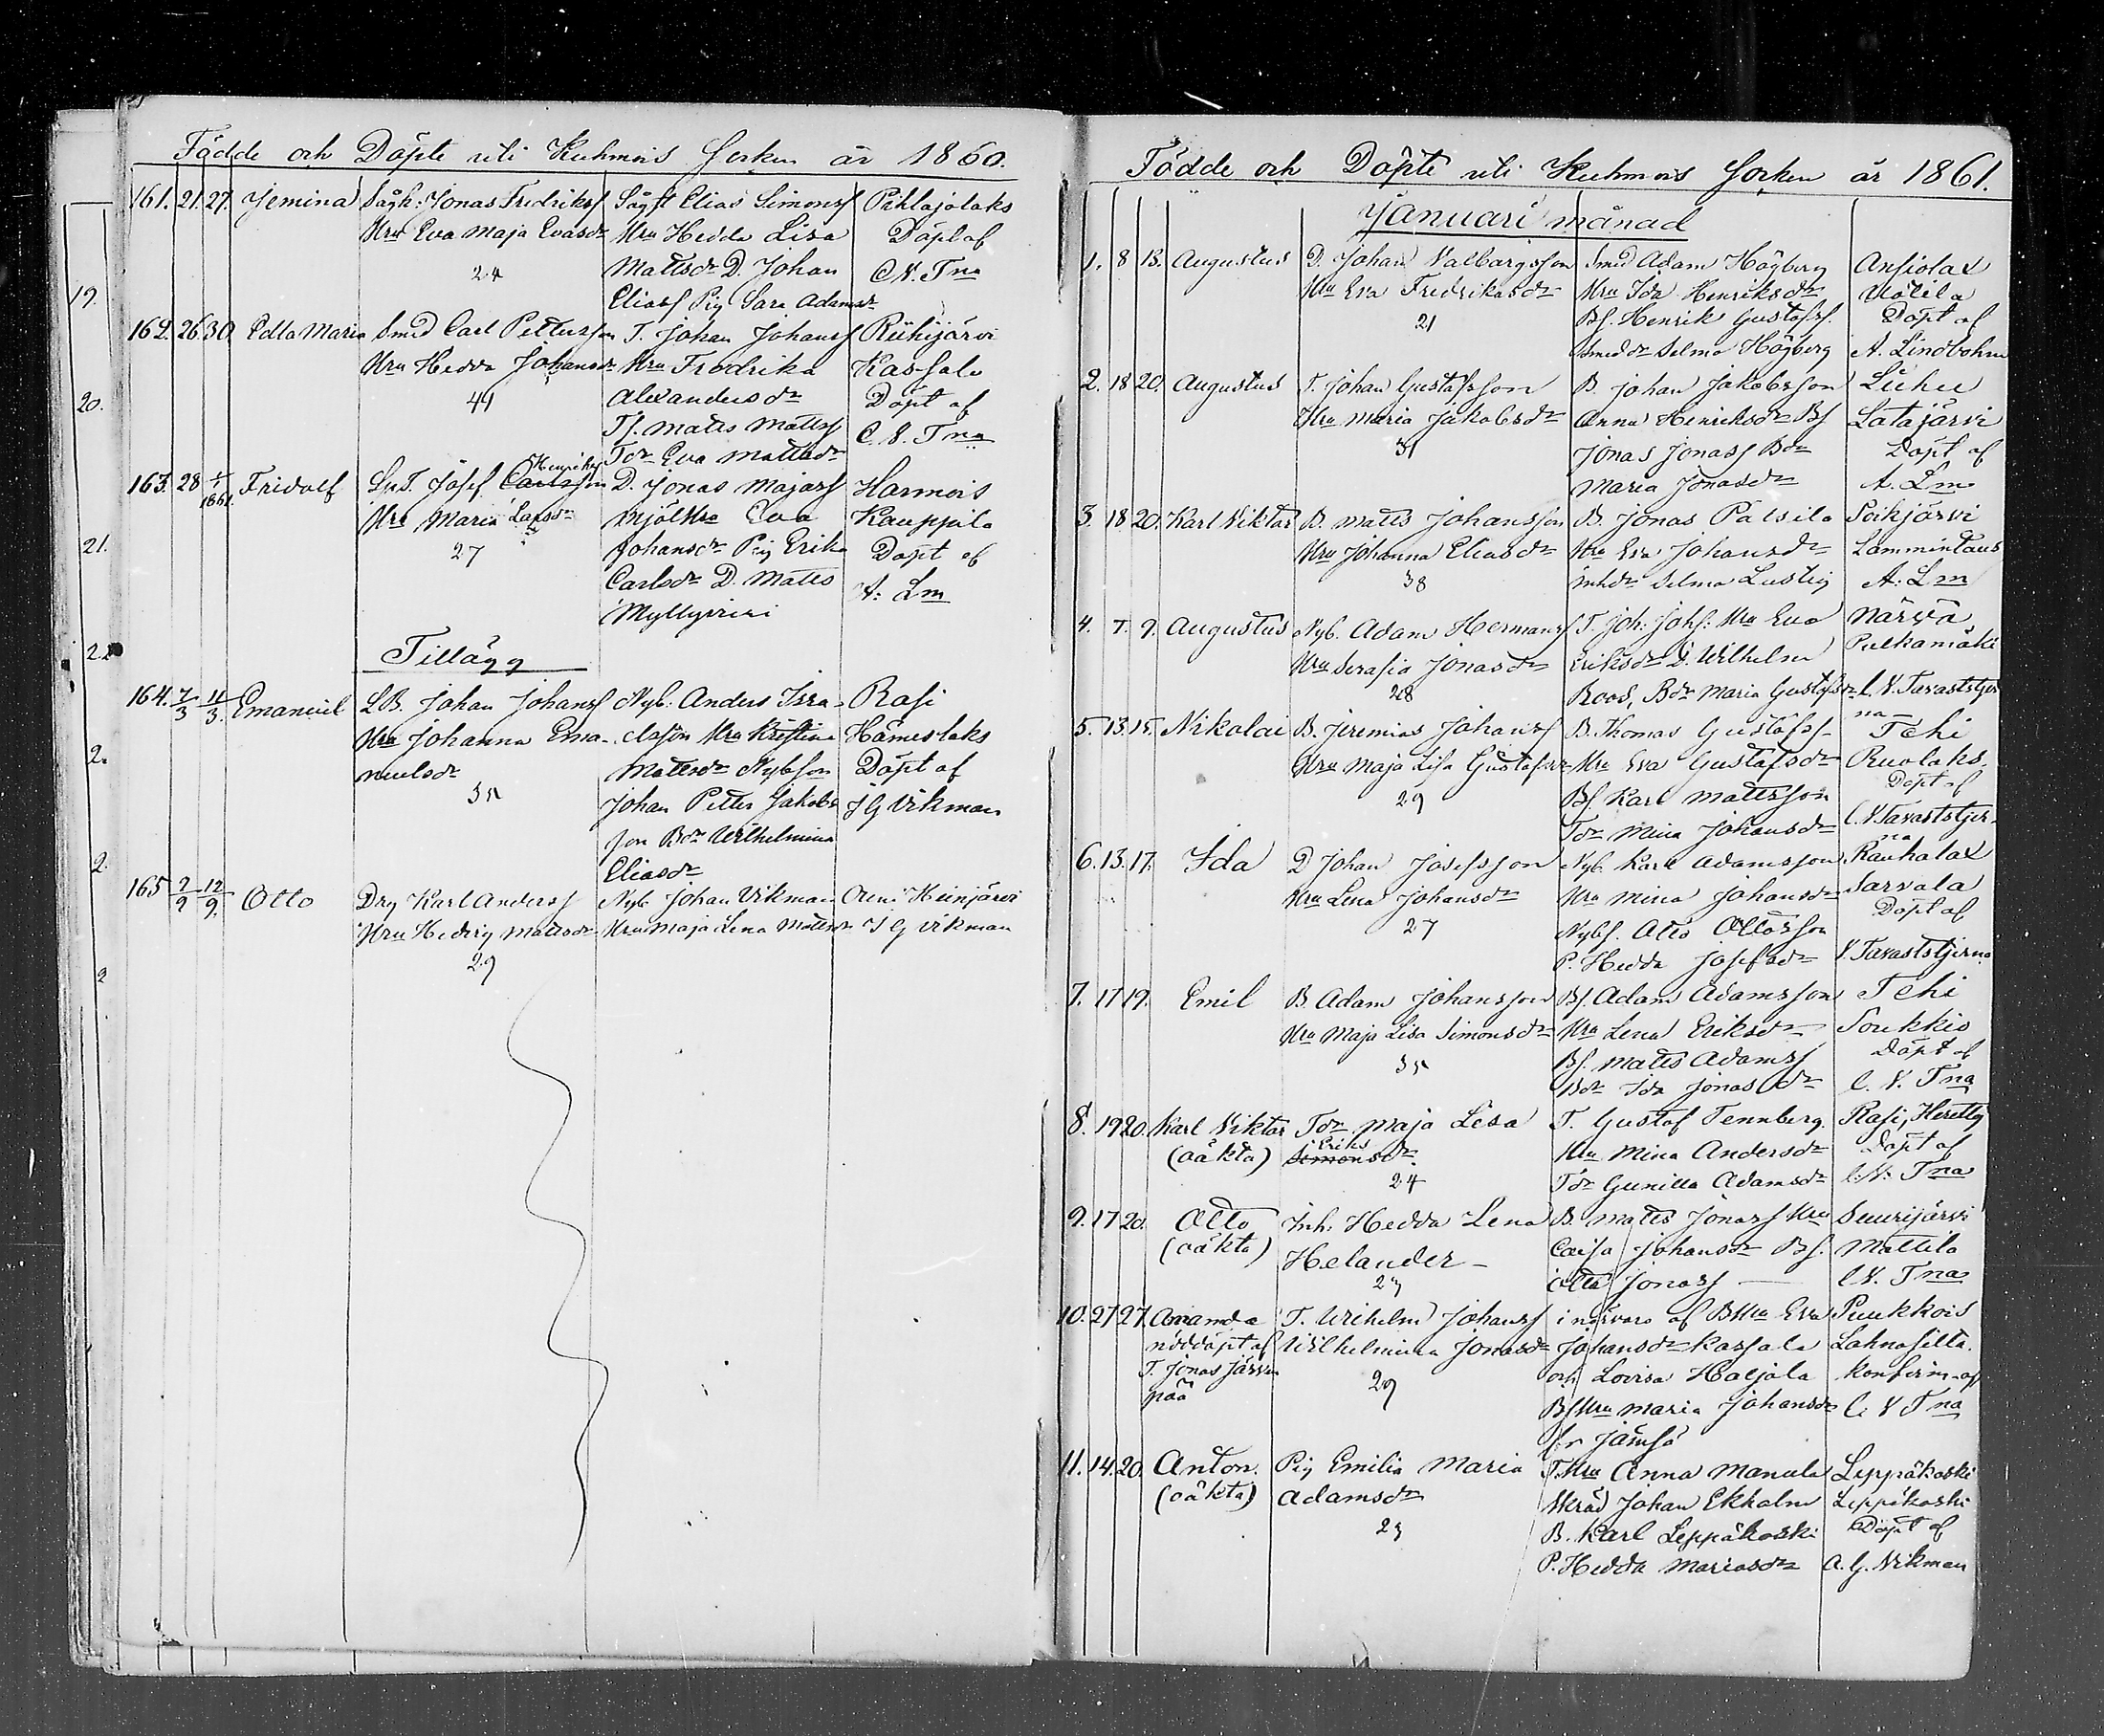 Födde och Döpte uti Kuhmois Socken år 1860.
161. 21. 27. Jemina Sågk: Jonas Fredrikss Sågst Elias Simonss Pihlajalaks
Hru Eva Maja Evasdr Hru Hedda Lisa Döpt af
24 Mattsdr D. Johan C.V. Tna
Eliass Pig Sara Adamsdr
162. 26. 30. Edla Maria Smed Carl Pettersson T. Johan Johanss Riihijärvi
Hru Hedda Johansdr Hru Fredrika Kassala
41 Alexandersdr Döpt af
Ts. Matts Mattss C.V. Tna
Tdr Eva Mattsdr
Henriks
163. 28 1/1 1861. Fridolf Josef Carlsson D. Jonas Majass Harmois
Hru Maria Larsdr Mjölhru Eva Kauppila
27 Johansdr Pig Erika Döpt af
Carlsdr D. Matts A. Lm
Myllyriivi
Tillägg
164. 7/3 11/3. Emanuel LB. Johan Johanss Nyb. Anders Isra- Rasi
Hru Johanna Ema- elsson Hru Kristina Hämeslaks
nuelsdr Mattsdr Nybson Döpt af
35 Johan Petter Jakobs J G Vikman
son Bdr Wilhelmina
Eliasdr
165 7/9 12/9. Otto Drg Karl Anderss Nyb Johan Vikman Heinjärvi
Hru Hedvig Mattsdr Hru Maja Lena Mattsdr J G Vikman
29
Födde och Döpte uti Kuhmois Socken år 1861.
Januari månad
1. 8 13. Augustus D. Johan Valborgsson Smed Adam Högberg Ansiolax
Hru Eva Fredriksdr Hru Ida Henriksdr Uotila
21 Bs. Henrik Gustafss. Döpt af
Smeddr Selma Högberg A. Lindbohm
2. 18 20. Augustus T. Johan Gustafsson B Johan Jakobsson Liehu
Hru Maria Jakobsdr Anna Henriksdr Bs Latajärvi
31 Jonas Jonass Bdr Döpt af
Maria Jonasdr A. Lm
3. 18 20. Karl Viktor B. Matts Johansson B. Jonas Patsila Poikjärvi
Hru Johanna Eliasdr Hru Eva Johansdr Lammintaus
38 Inhdr Selma Lustig A. Lm
4. 7. 9. Augustus Nyb. Adam Hermanss T. Joh: Johs: Hru Eva Närvä
Hru Serafia Jonasdr Eriksdr D. Wilhelm Pulkamäki
28 Roos, Bdr Maria Gustafsdr C.V. Tavaststjer
na
5. 13. 15. Nikolai B. Jeremias Johanss B. Thomas Gustafss Tehi
Hru Maja Lisa Gustafsdr Hru Eva Gustafsdr Ruolaks.
29 Bs Karl Mattsson Döpt af
Tdr Mina Johansdr C.V. Tavaststjer-
na
6. 13. 17. Ida D Johan Josefsson Nyb. Karl Adamsson Rauhalax
Hru Lena Johansdr Hru Mina Johansdr Sarvala
27 Nybs. Atto Ottosson Döpt af
P. Hedda Josefsdr V. Tavaststjerna
7. 17 19. Emil B. Adam Johansson Bs. Adam Adamsson Tehi
Hru Maja Lisa Simonsdr Hru Lena Eriksdr Soukkio
35 Bs. Matts Adamss Döpt af
Bdr Ida Jonasdr C.V. Tna
8. 19 20. Karl Viktor Tdr Maja Lisa T. Gustaf Tennberg. Rasi, Herettq
(oäkta) Eriks Simonsdr. Hru Mina Andersdr Döpt af
24 Tdr Gunilla Adamsdr C.V. Tna
9. 17 20. Otto Inh. Hedda Lena B. Matts Jonass Hru Suurijärvi
(oäkta) Helander Caisa Johansdr Bs. Mattila
Otto Jonass C.V. Tna
10. 27 27. Amanda T. Wilhelm Johanss i närvaro af BHru Eva Puukkois
nöddöpt af Wilhelmina Jonasdr Johansdr Kassala Lahnasilta.
T. Jonas Järven 29 och Lovisa Haljala Konfirm. af
pää BsHru Maria Johansdr C.V. Tna
fr Jämsä
11. 14. 20. Anton. Pig Emilia Maria T.Hru Anna Manula Leppäkoski
(oäkta) Adamsdr Skräd Johan Ekholm Leppäkoski
23 B. Karl Leppäkoski Döpt af
P. Hedda Mariasdr A. G. Vikman
19.
20.
21.
22
2.
2.
2